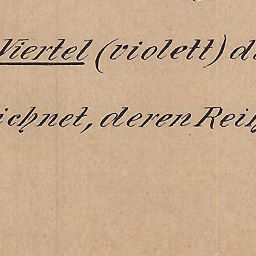 Viertel (violett) d
ichnet, deren Reih